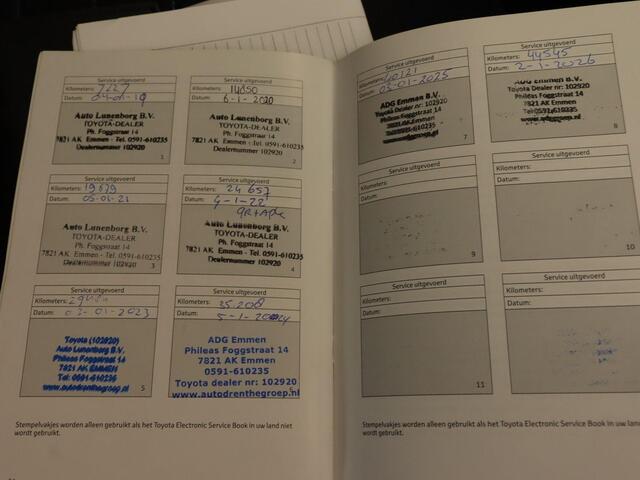 Service uitgevoerd
Kilometers: 7227
Datum: 04-01-19
Auto Lunenborg B.V.
TOYOTA-DEALER
Ph. Foggstraat 14
7821 AK Emmen - Tel. 0591-610235
Dealernummer 102920
1
Service uitgevoerd
Kilometers: 14050
Datum: 6-1-2020
Auto Lunenborg B.V.
TOYOTA-DEALER
Ph. Foggstraat 14
7821 AK Emmen - Tel. 0591-610235
Dealernummer 102920
2
Service uitgevoerd
Kilometers: 19679
Datum: 05-01-21
Auto Lunenborg B.V.
TOYOTA-DEALER
Ph. Foggstraat 14
7821 AK Emmen - Tel. 0591-610235
Dealernummer 102920
3
Service uitgevoerd
Kilometers: 24 657
Datum: 4-1-22
Auto Lunenborg B.V.
TOYOTA-DEALER
Ph. Foggstraat 14
7821 AK Emmen - Tel. 0591-610235
Dealernummer 102920
4
Service uitgevoerd
Kilometers:
Datum: 03-01-2023
Toyota (102920)
Auto Lunenborg B.V.
Phileas Foggstraat 14
7821 AK EMMEN
Tel: 0591-610235
www.autodrenthegroep.nl
5
Service uitgevoerd
Kilometers: 35.208
Datum: 5-1-2024
ADG Emmen
Phileas Foggstraat 14
7821 AK Emmen
0591-610235
Toyota dealer nr: 102920
www.autodrenthegroep.nl
Stempelvakjes worden alleen gebruikt als het Toyota Electronic Service Book in uw land niet
wordt gebruikt.
Service uitgevoerd
Kilometers: 40121
Datum: 03-01-2025
ADG Emmen B.V.
Toyota Dealer nr: 102920
Phileas Foggstraat 14
7821 AK Emmen
7
Service uitgevoerd
Kilometers: 44545
Datum: 2-1-2026
ADG Emmen B.V.
Toyota Dealer nr: 102920
Phileas Foggstraat 14
7821 AK Emmen
Tel: 0591-610235
8
Service uitgevoerd
Kilometers:
Datum:
9
Service uitgevoerd
Kilometers:
Datum:
10
Service uitgevoerd
Kilometers:
Datum:
11
Service uitgevoerd
Kilometers:
Datum:
Stempelvakjes worden alleen gebruikt als het Toyota Electronic Service Book in uw la
wordt gebruikt.